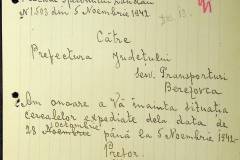 Nr 1.503 din 5 Noembrie 1942.
Către
Prefectura Judetului
Serv. Transporturi
Berezovca
Am onoare a Vă înainta situația
cerealelor expediate dela data de
octombrie
28 Noembrie până la 5 Noembrie 1942-
Pretor.